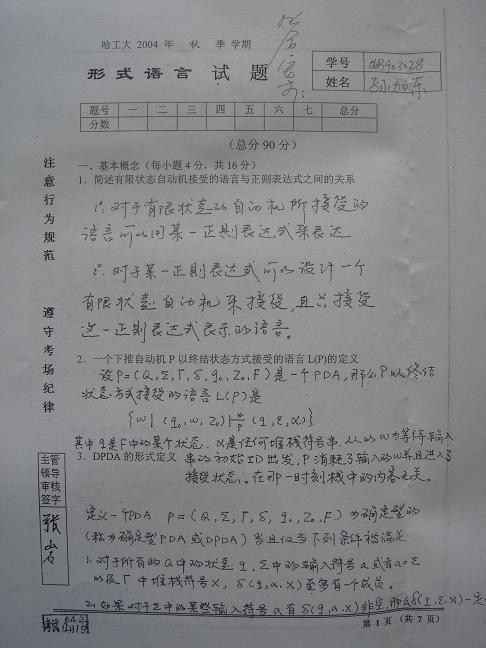 哈工大 2004 年 秋 季学期
形式语言 试 题
学号
姓名
题号 一 二 三 四 五 六 七 总分
分数
（总分90分）
注意行为规范 遵守考场纪律
一、基本概念（每小题4分，共16分）
1．简述有限状态自动机接受的语言与正则表达式之间的关系
1°: 对于有限状态的自动机所接受的
语言可以用某一正则表达式来表达
2°. 对于某一正则表达式可以设计一个
有限状态自动机来接受,且只接受
这一正则表达式表示的语言。
2．一个下推自动机 P 以终结状态方式接受的语言 L(P)的定义
设P=(Q,Σ,Γ,δ,q₀,Z₀,F)是一个PDA,那么P以终结
状态方式接受的语言L(P)是
{w | (q₀,w,Z₀)⊢*P (q,ε,α)}
其中q是F中的某个状态. α是任何堆栈符号串.从以w为等待输入
3．DPDA 的形式定义
串的初始ID出发,P消耗了输入的w并且进入了
接受状态。在那一时刻栈中的内容无关。
主管领导审核签字
张岩
定义一个PDA P=(Q,Σ,Γ,δ,q₀,Z₀,F)为确定型的
(称为确定型PDA或DPDA)当且仅当下列条件被满足
1:对于所有的Q中的状态q,Σ中的输入符号a或者a=ε
以及Γ中堆栈符号X, δ(q,a,X)至多有一个成员。
2:如果对于Σ中的某些输入符号a有δ(q,a,X)非空,那么δ(q,ε,X)一定
第 1 页（共 7 页）